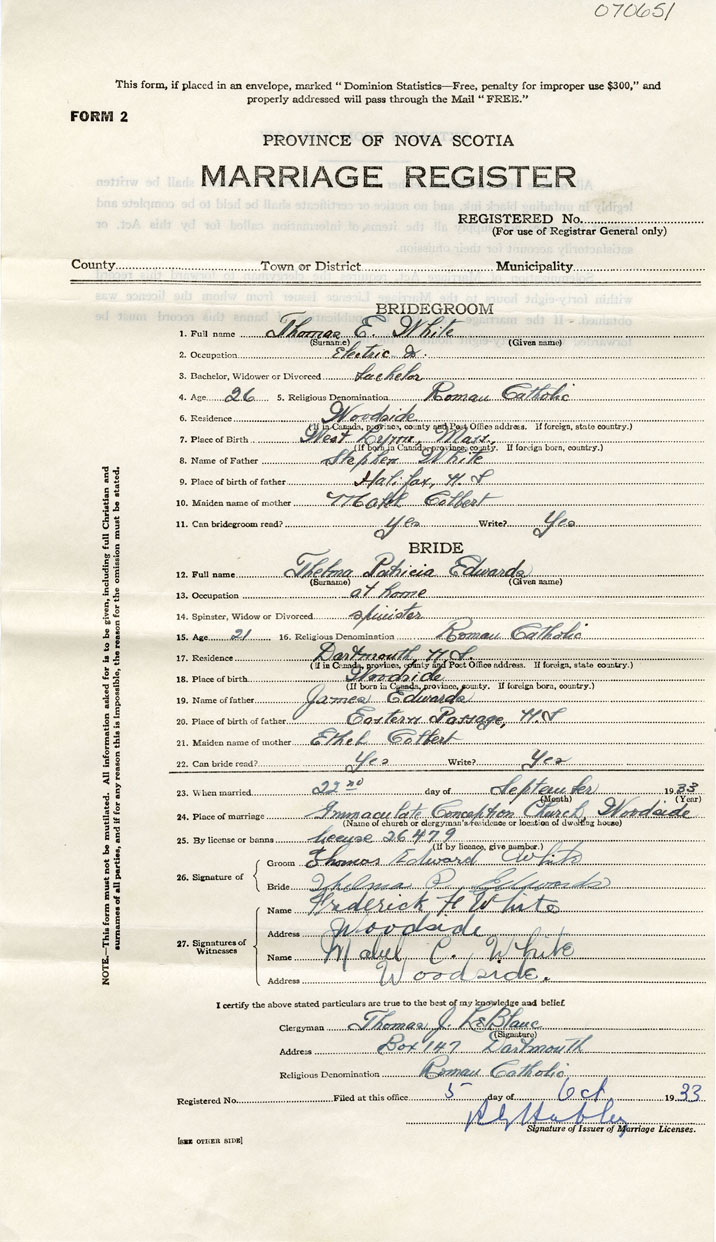 070651
This form, if placed in an envelope, marked "Dominion Statistics—Free, penalty for improper use $300," and
properly addressed will pass through the Mail "FREE."
FORM 2
PROVINCE OF NOVA SCOTIA
MARRIAGE REGISTER
REGISTERED No.
(For use of Registrar General only)
County Town or District Municipality
BRIDEGROOM
1. Full name Thomas E. White
(Surname) (Given name)
2. Occupation Electric
3. Bachelor, Widower or Divorced bachelor
4. Age 26 5. Religious Denomination Roman Catholic
6. Residence Woodside
(If in Canada, province, county and Post Office address. If foreign, state country.)
7. Place of Birth West Lynn, Mass.
(If born in Canada, province, county. If foreign born, country.)
8. Name of Father Stephen White
9. Place of birth of father Halifax, N.S
10. Maiden name of mother Colbert
11. Can bridegroom read? yes Write? Yes
BRIDE
12. Full name Thelma Patricia Edwards
(Surname) (Given name)
13. Occupation at home
14. Spinster, Widow or Divorced spinister
15. Age 21 16. Religious Denomination Roman Catholic
17. Residence Dartmouth, N.S
(If in Canada, province, county and Post Office address. If foreign, state country.)
18. Place of birth Woodside
(If born in Canada, province, county. If foreign born, country.)
19. Name of father James Edwards
20. Place of birth of father Eastern Passage, N.S
21. Maiden name of mother Ethel Colbert
22. Can bride read? Yes Write? Yes
23. When married 22nd day of September 1933
(Month) (Year)
24. Place of marriage Immaculate Conception Church, Woodside
(Name of church or clergyman's residence or location of dwelling house)
25. By license or banns license 26479
(If by licence, give number.)
26. Signature of Groom Thomas Edward White
Bride Thelma P. Edwards
27. Signatures of Witnesses Name Frederick H White
Address Woodside
Name Mabel C. White
Address Woodside.
I certify the above stated particulars are true to the best of my knowledge and belief.
Clergyman Thomas J. LeBlanc
(Signature)
Address Box 147 Dartmouth
Religious Denomination Roman Catholic
Registered No. Filed at this office 5 day of Oct 1933
Signature of Issuer of Marriage Licenses.
[SEE OTHER SIDE]
NOTE.—This form must not be mutilated. All information asked for is to be given, including full Christian and
surnames of all parties, and if for any reason this is impossible, the reason for the omission must be stated.